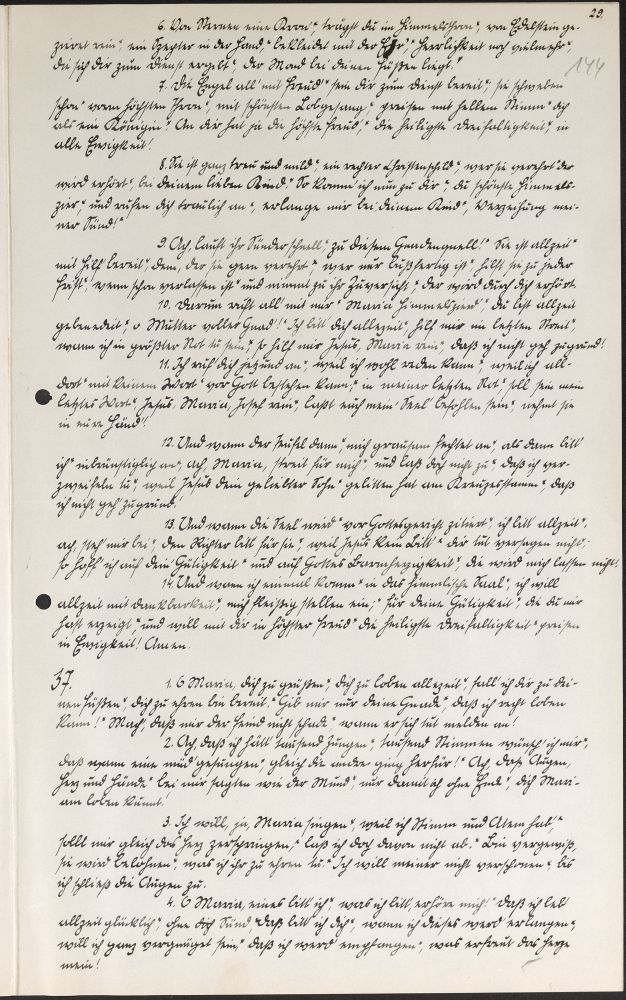 29.
144
6. Von Sternen eine Kron", trägst du im Himmelsthron", von Edelstein ge-
zieret rein", ein Szepter in der Hand", bekleidet mit der Herrlichkeit noch vielmehr",
die sich dir zum Dienst ergibt", der Mond bei deinen Füßen liegt."
7. Die Engel all' mit Freud" sein dir zum Dienst bereit", sie schweben
schon vorm höchsten Thron", mit schönstem Lobgesang", preisen mit hellem Stimm" dich
als ein Königin! An dir hat ja die höchste Freud", die heiligste Dreifaltigkeit", in
alle Ewigkeit!
8. Sie ist ganz treu und mild", ein rechter Christenschild", wer sie verehrt der
wird erhört", bei deinem lieben Kind." So komm' ich nun zu dir", du schönste Himmels-
zier", und rufen dich traulich an", erlange mir bei deinem Kind", Verzeihung mei-
ner Sünd!"
9. Ach, lauft ihr Sünder schnell" zu diesem Gnadenquell!" Sie ist allzeit"
mit Hilf' bereit", dem, der sie gern verehrt", wer nur bußfertig ist", hilft sie zu jeder
Frist", wenn schon verlassen ist" und nimmt zu ihr Zuversicht", der wird durch dich erhört.
10. Darum ruft all' mit mir" Maria Himmelszier", du bist allzeit
gebenedeit", o Mutter voller Gnad'!" Ich bitt dich allezeit", hilf mir im letzten Streit",
wann ich in größter Not tu sein", so hilf mir Jesus, Maria rein", daß ich nicht geh zugrund!
11. Ich ruf' dich jetzund an", weil ich wohl reden kann", weil ich all-
dort" mit keinem Wort" vor Gott bestehen kann", in meiner letzten Not", soll sein mein
letztes Wort", Jesus, Maria, Josef rein", laßt euch mein Seel' befohlen sein", nehmt sie
in eure Händ'!
12. Und wann der Teufel dann", mich grausam fechtet an", als dann bitt'
ich" inbrünstiglich an, ach, Maria, streit für mich", und laß doch nicht zu" daß ich ver-
zweifeln tu", weil Jesus dein geliebter Sohn" gelitten hat am Kreuzesstamm", daß
ich nicht geh' zugrund.
13. Und wann die Seel' wird" vor Gottesgericht zitiert", ich bitt allzeit",
ach, steh' mir bei", den Richter bitt für sie", weil Jesus kein Bitt" dir tut versagen nicht",
so hoff' ich auf dein Gütigkeit" und auf Gottes Barmherzigkeit", die wird mich lassen nicht!
14. Und wann ich einmal komm" in das himmlische Saal", ich will
allzeit mit Dankbarkeit", mich fleißig stellen ein", für deine Gütigkeit", die du mir
hast erzeigt", und will mit dir in höchster Freud" die heiligste Dreifaltigkeit" preisen
in Ewigkeit! Amen.
37.
1. O Maria, dich zu grüßen", dich zu loben allezeit", fall' ich dir zu dei-
nen Füßen", dich zu ehren bin bereit." Gib mir nur deine Gnade", daß ich recht loben
kann!" Mach', daß mir der Feind nicht schade" wann er sich tut melden an!
2. Ach, daß ich hätt' tausend Zungen", tausend Stimmen wünsch' ich mir",
daß wann eine müd' gesungen", gleich die andre ging herfür!" Ach, daß Augen,
Herz und Hände" bei mir sagten wie der Mund", nur damit ich ohne End", dich Mari-
am loben kunnt.
3. Ich will, ja, Maria singen", weil ich Stimm und Atem hab'",
sollt mir gleich das Herz zerspringen," laß ich doch davon nicht ab." Bin vergewiß,
sie wird belohnen", was ich ihr zu ehren tu." Ich will meiner nicht verschonen", bis
ich schließ die Augen zu.
4. O Maria, eines bitt ich", was ich bitt, erhöre mich!" Daß ich leb'
allzeit glücklich", ohne Sünd" daß bitt ich dich", wann ich dieses werd' erlangen",
will ich ganz vergnüget sein", daß ich werd' empfangen", was erfreut das Herze
mein!